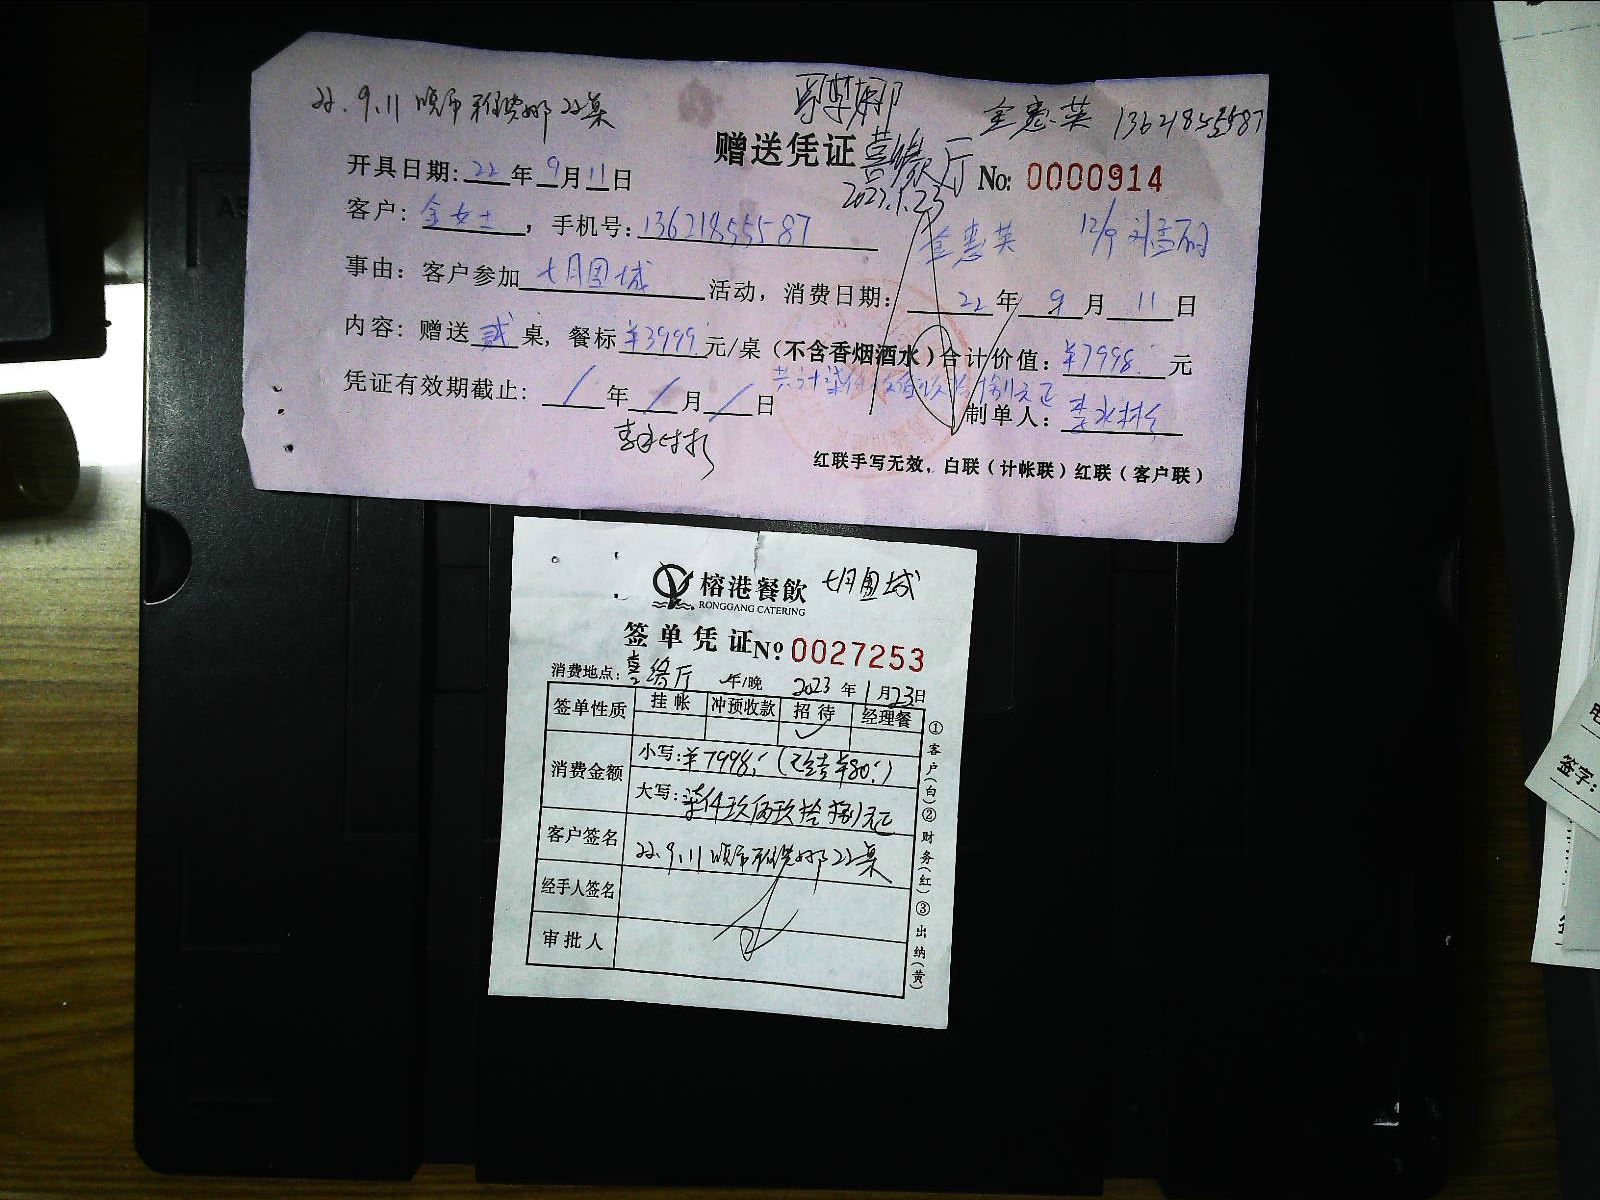 22.9.11 22桌
赠送凭证 喜缘厅 No: 0000914
金惠英 13621855587
2023.1.23
开具日期: 22 年 9 月 11 日
客户: 金女士 , 手机号: 13621855587
金惠英 12/9
事由: 客户参加 七月围城 活动, 消费日期: 22 年 9 月 11 日
内容: 赠送 贰 桌, 餐标 ¥3999 元/桌 (不含香烟酒水) 合计价值: ¥7998. 元
共计柒仟玖佰玖拾捌元正
凭证有效期截止: / 年 / 月 / 日
制单人:
红联手写无效, 白联 (计帐联) 红联 (客户联)
榕港餐飲 七月围城
RONGGANG CATERING
签单凭证 № 0027253
消费地点: 喜缘厅 午/晚 2023 年 1 月 23 日
签单性质 挂帐 冲预收款 招待 经理餐
消费金额 小写: ¥7998.
大写: 柒仟玖佰玖拾捌元正
客户签名 22.9.11 22桌
经手人签名
审批人
①客户(白)②财务(红)③出纳(黄)
签字: